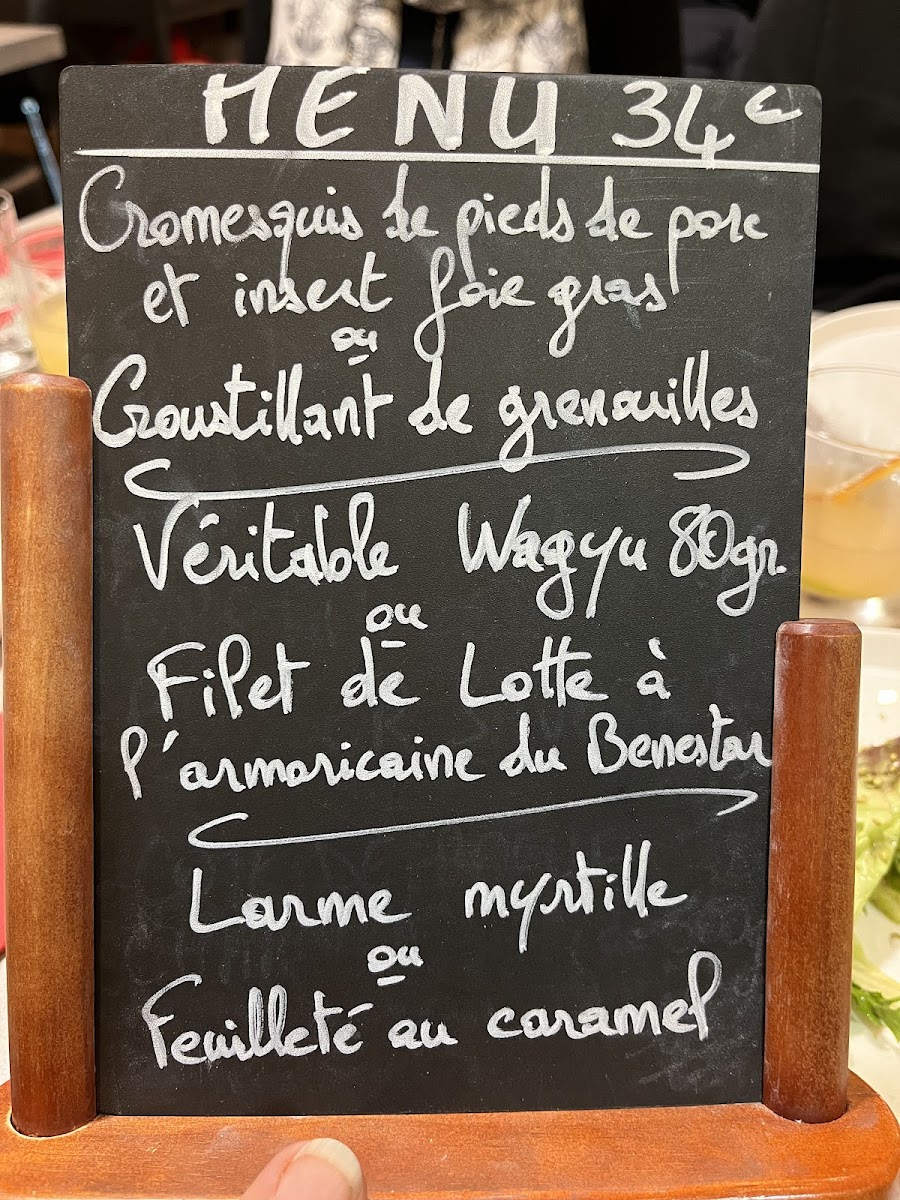 MENU 34€
Cromesquis de pieds de porc
et insert foie gras
ou
Croustillant de grenouilles
Véritable Wagyu 80gr.
ou
Filet de Lotte à
l'armoricaine du Benestar
Larme myrtille
ou
Feuilleté au caramel